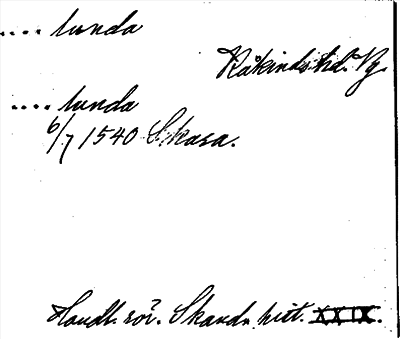 .... lunda
Kåkinds hd. Vg.
.... lunda
6/7 1540 Skasa.
Handl. rör. Skand. hist. XXIX.